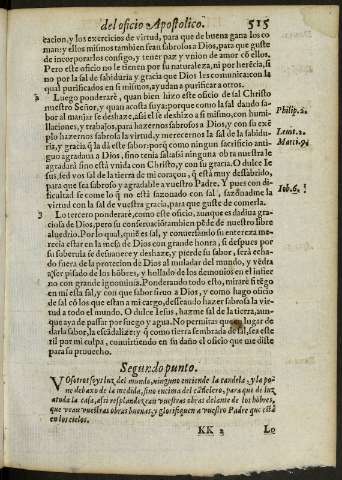 del oficio Apostolico.
515
cacion, y los exercicios de virtud, para que de buena gana los co
man: y ellos mismos tambien sean sabrosos a Dios, para que guste
de incorporarlos consigo, y tener paz y vnion de amor cō ellos.
Pero este oficio no le tienen por su naturaleza, ni por herēcia, si
no por la sal de sabiduria y gracia que Dios les comunica: con la
qual purificados en si mismos, ayudan a purificar a otros.
Luego ponderarè, quan bien hizo este oficio de sal Christo
nuestro Señor, y quan a costa suya: porque como la sal dando sa-
bor al manjar se deshaze, assi el se deshizo a si mismo, con humi-
llaciones, y trabajos, para hazernos sabrosos a Dios, y con su exē
plo hazernos sabrosa la virtud, y merecernos la sal de la sabidu-
ria, y gracia, q̄ la dà este sabor: porq̄ como ningun sacrificio anti-
guo agradaua a Dios, sino tenia sal: assi ninguna obra nuestra le
agradarà sino està vnida con Christo, y con su gracia. O dulce Ie
sus, sed vos sal de la tierra de mi coraçon, q̄ està muy dessabrido,
para que sea sabroso y agradable a vuestro Padre. Y pues con di-
ficultad se come lo q̄ no està sazonado con sal, sazonadme la
virtud con la sal de vuestra gracia, para que guste de comerla.
Philip. 2.
Leuit. 2.
Marci. 9.
Iob. 6.
Lo tercero ponderarè, como este oficio, aunque es dadiua gra-
ciosa de Dios, pero su conseruaciō tambien pēde de nuestro libre
aluedrio. Por lo qual, quiē es sal, y conseruando su entereza me-
recia estar en la mesa de Dios con grande honra, si despues por
su soberuia se desuanece y deshaze, y pierde su sabor, serà echa-
do fuera de la proteccion de Dios al muladar del mundo, y vēdra
a ser pisado de los hōbres, y hollado de los demonios en el infier
no con grande ignominia. Ponderando todo esto, mirarè si tēgo
en mi esta sal, y con que sabor siruo a Dios, y como hago oficio
de sal cō los que estan a mi cargo, desseando hazer sabrosa la vir-
tud a todo el mundo. O dulce Iesus, hazme sal de la tierra, aun-
que aya de passar por fuego y agua. No permitas que en lugar de
darla sabor, la escādalize: y q̄ como tierra sembrada de sal, sea este
ril por mi culpa, conuirtiendo en su daño el oficio que me diste
para su prouecho.
Segundo punto.
VOsotros soys luz del mundo, ninguno enciende la candela, y la po
ne debaxo de la medida, sino encima del cādelero, para que de luz
a toda la casa, assi resplandezcan vuestras obras delante de los hōbres,
que vean vuestras obras buenas, y glorifiquen a vuestro Padre que està
en los cielos.
KK 2
Lo